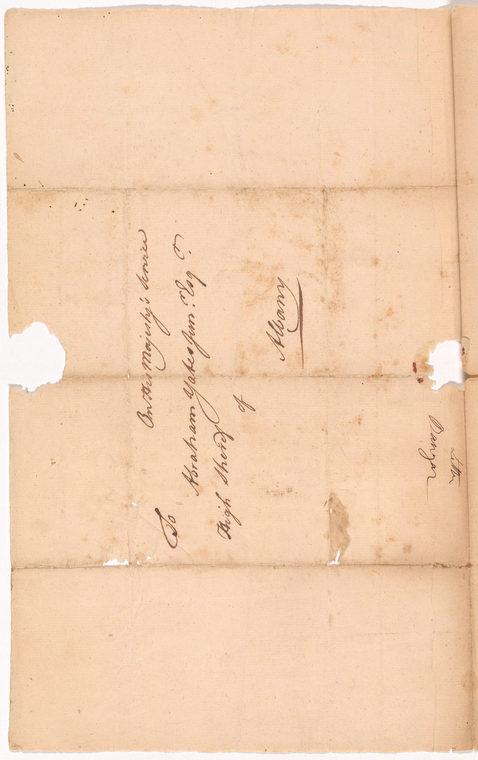 On His Majesty's Service
To
Abraham Yates Jun.r Esq.r
High Sherif
of
Albany